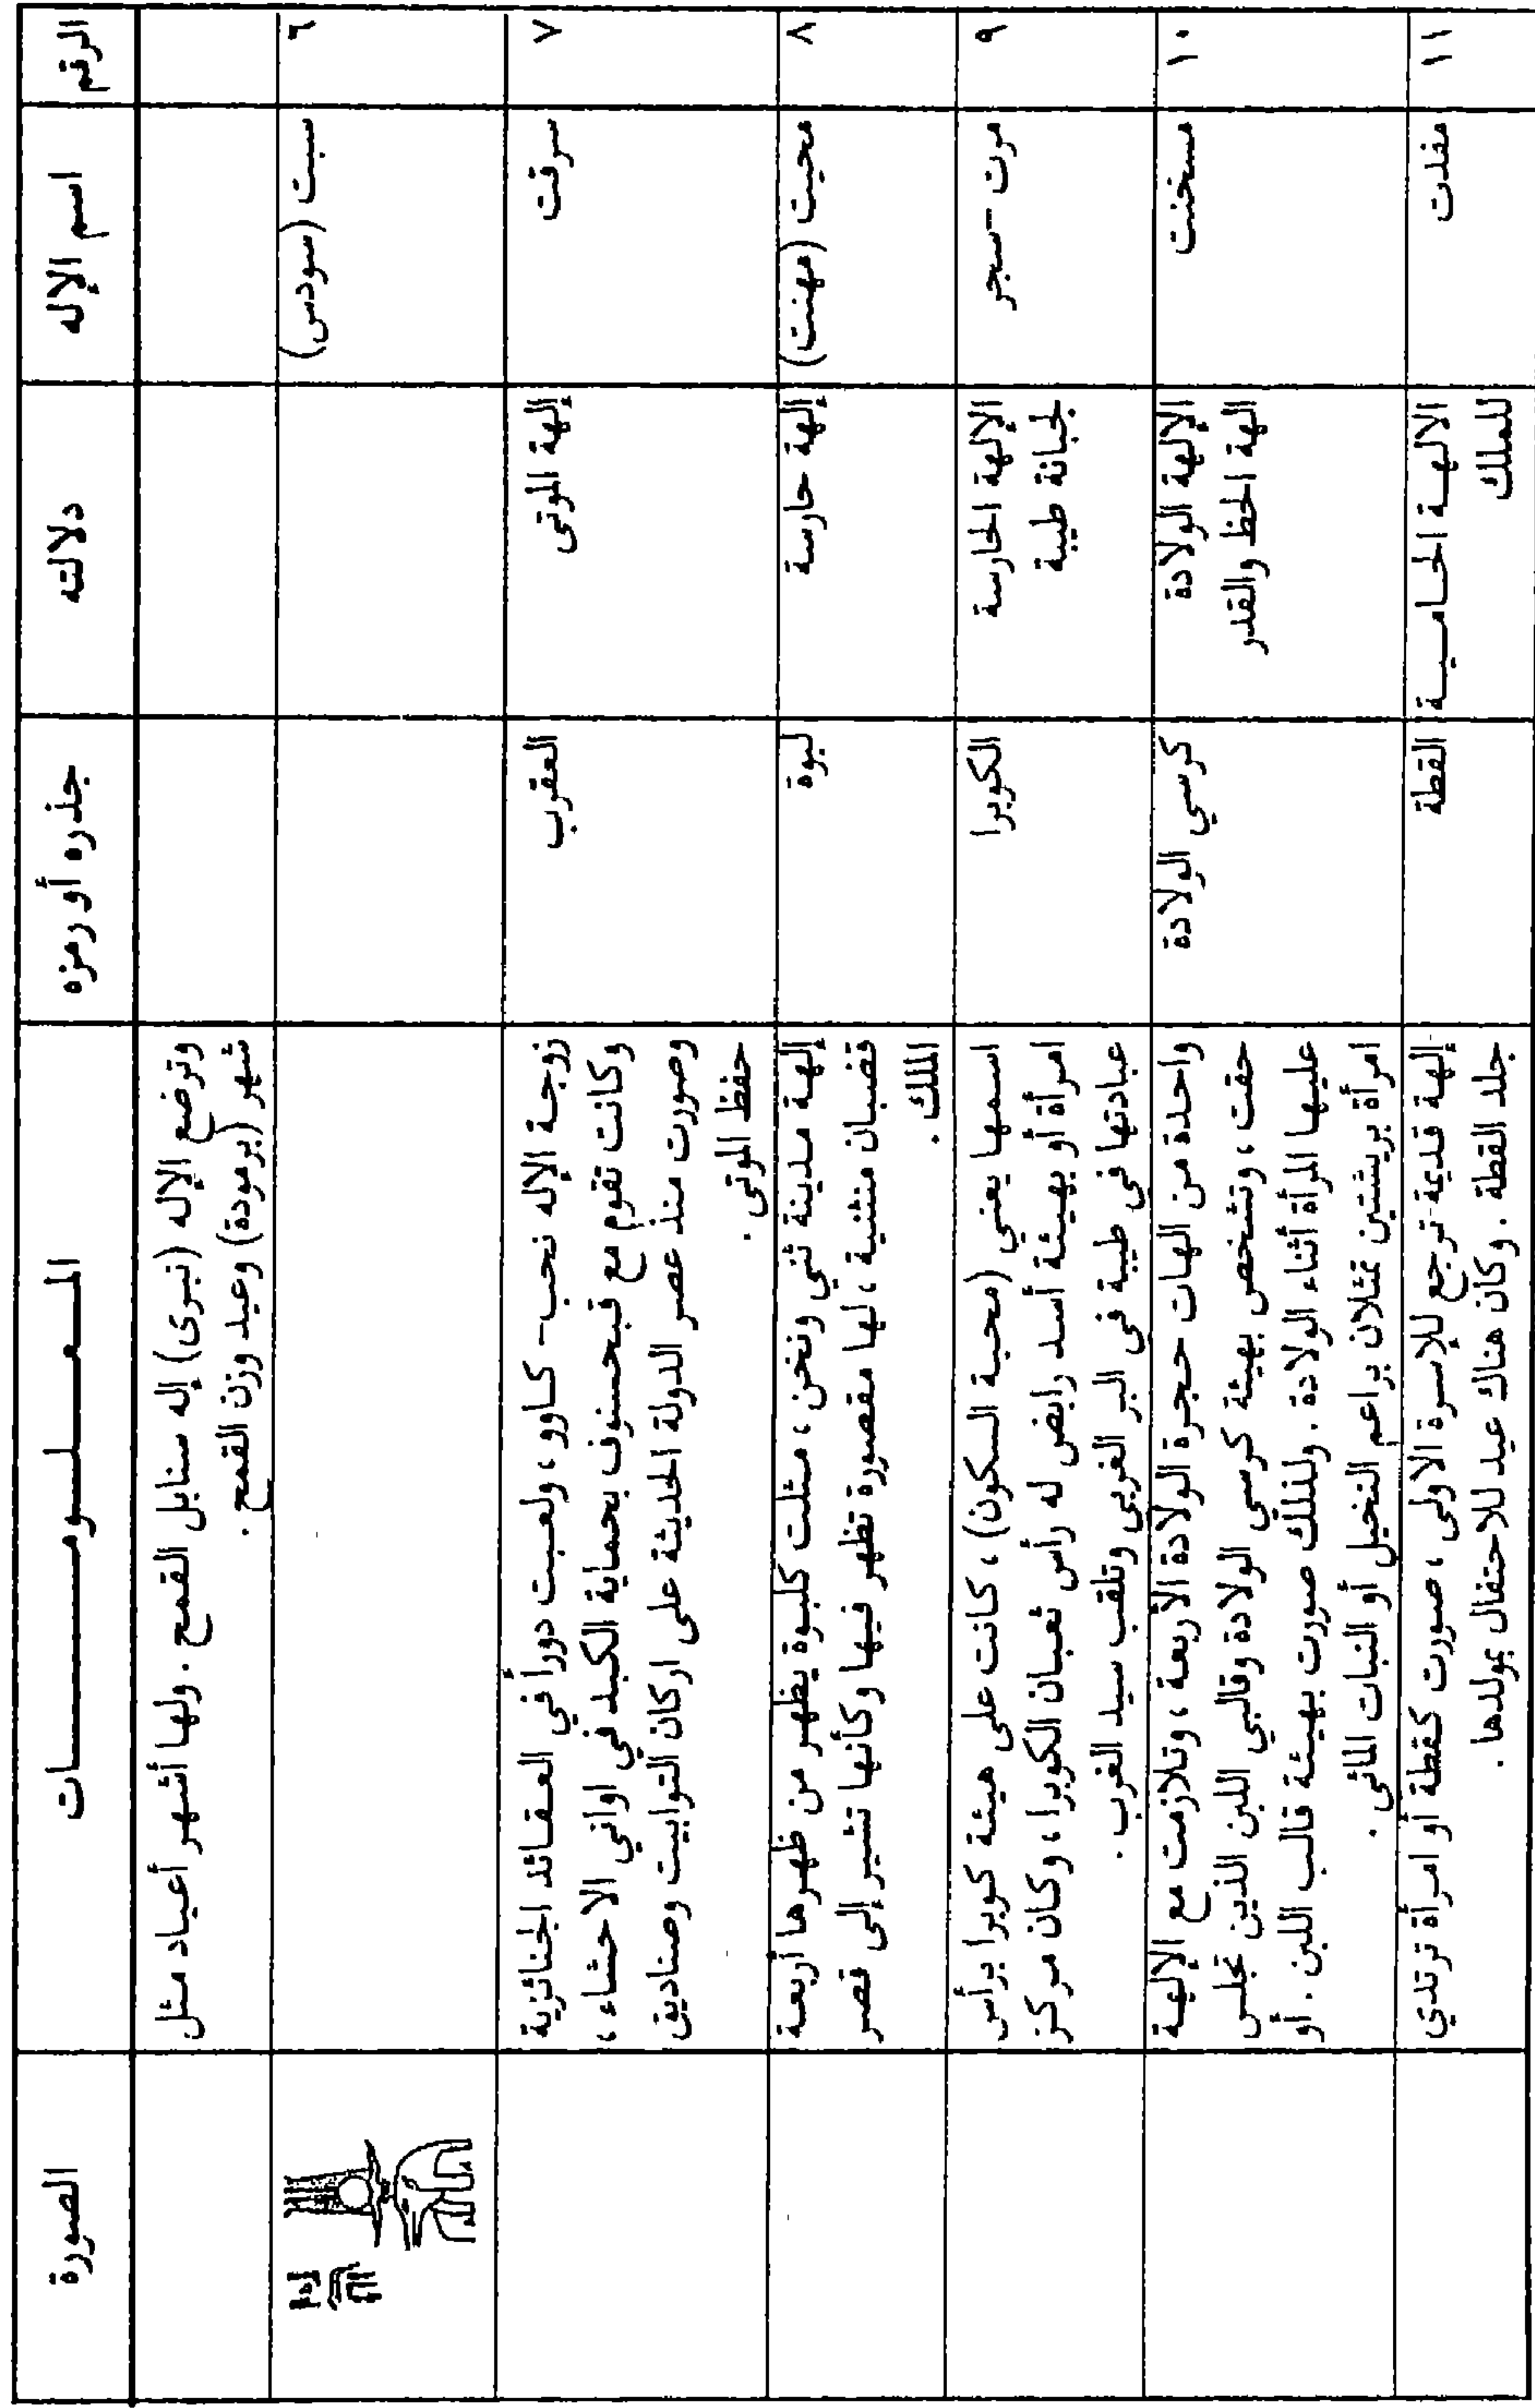 الرقم | اسم الإله | دلالته | جذره أو رمزه | المعلومات | الصورة
وترضع الإله (نبرى) إله سنابل القمح . ولها أشهر أعياد مثل
شهر (برمودة) وعيد وزن القمح .
٦ | سبت (سودس)
٧ | سرقت | إلهة الموتى | العقرب | زوجة الإله نحب - كاوو ، ولعبت دوراً في العقائد الجنائزية
وكانت تقوم مع قبحسنوف بحماية الكبد في اواني الاحشاء ،
وصورت منذ عصر الدولة الحديثة على اركان التوابيت وصناديق
حفظ الموتى .
٨ | محيت (مهنت) | إلهة حارسة | لبوة | إلهة مدينة ثني ونخن ، مثلت كلبوة يظهر من ظهرها أربعة
قضبان منثنية ، لها مقصورة تظهر فيها وكأنها تشير إلى قصر
الملك .
٩ | مرت -سجر | الإلهة الحارسة | الكوبرا | اسمها يعني (محبة السكون) ، كانت على هيئة كوبرا برأس
لجبانة طيبة | امرأة أو بهيئة أسد رابض له رأس ثعبان الكوبرا ، وكان مركز
عبادتها في طيبة في البر الغربي وتلقب سيد الغرب .
١٠ | مسخنت | الإلهة الولادة | كرسي الولادة | واحدة من الهات حجرة الولادة الأربعة ، وتلازمت مع الإلهة
الهة الحظ والقدر | حقت ، وتشخص بهيئة كرسي الولادة وقالبي اللبن الذين تجلس
عليها المرأة أثناء الولادة . ولذلك صورت بهيئة قالب اللبن . أو
امرأة بريشتين تمثلان براعم النخيل أو النبات المائي .
١١ | مفدت | الالهة الحامية | القطة | إلهة قديمة ترجع للاسرة الاولى ، صورت كقطة أو امرأة ترتدي
للملك | جلد القطة . وكان هناك عيد للاحتفال بمولدها .